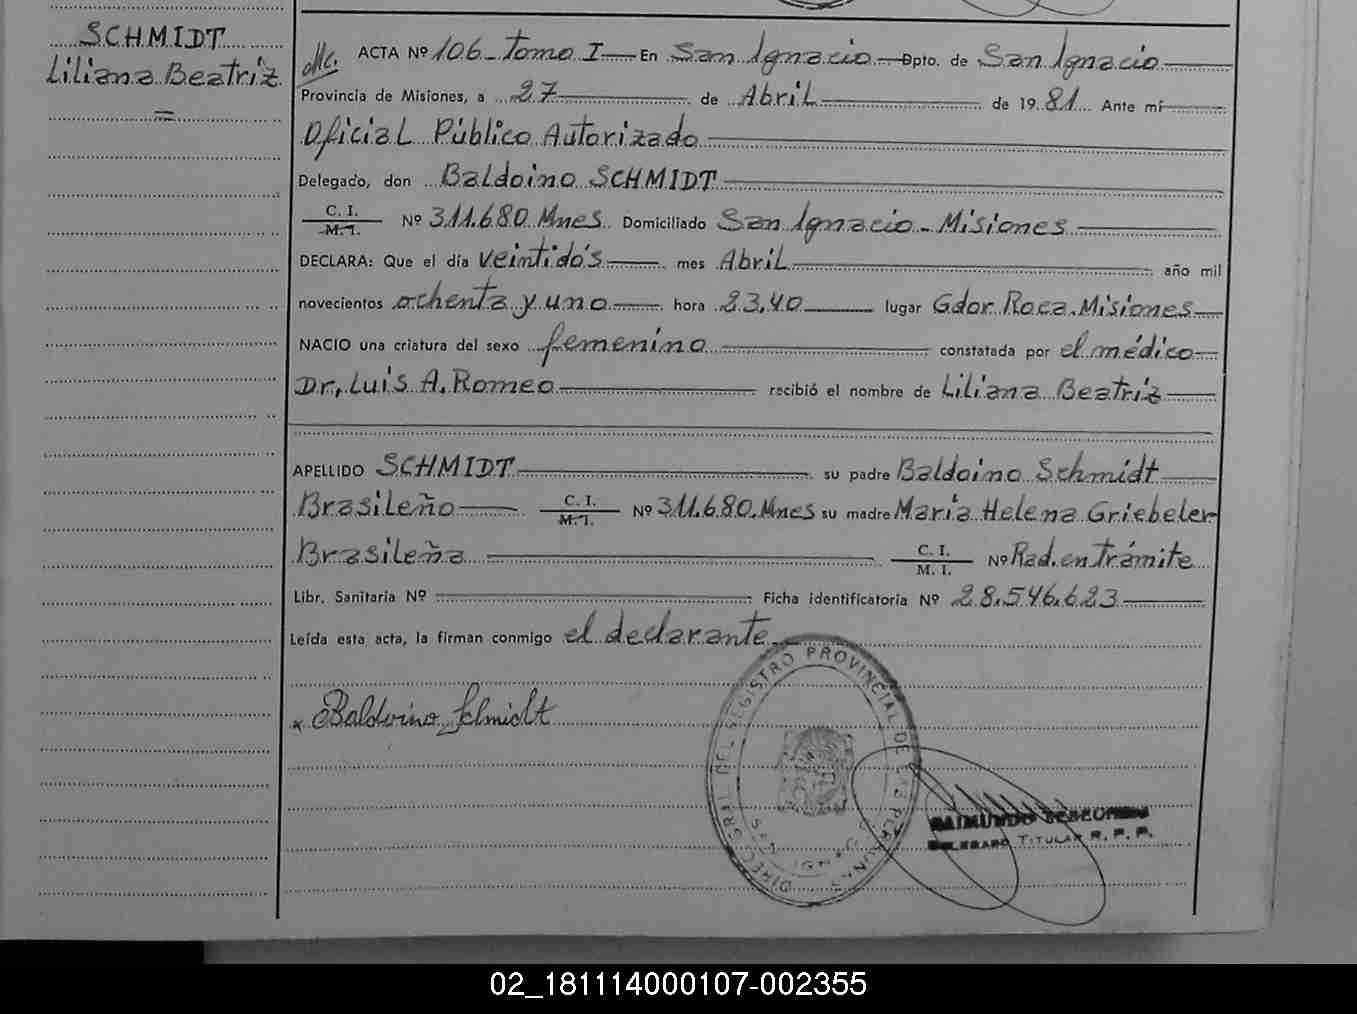 SCHMIDT
Liliana Beatriz
=
ACTA Nº 106 - Tomo I — En San Ignacio — Dpto. de San Ignacio
Provincia de Misiones, a 27 de Abril de 1981 Ante mí
Oficial Público Autorizado
Delegado, don Baldoino SCHMIDT
C. I.
M. I. Nº 311.680 Mnes. Domiciliado San Ignacio - Misiones
DECLARA: Que el día veintidós mes Abril año mil
novecientos ochenta y uno hora 23,40 lugar Gdor Roca. Misiones
NACIO una criatura del sexo femenino constatada por el médico
Dr. Luis A. Romeo recibió el nombre de Liliana Beatriz
APELLIDO SCHMIDT su padre Baldoino Schmidt
Brasileño C. I.
M. I. Nº 311.680. Mnes su madre María Helena Griebeler
Brasileña C. I.
M. I. Nº Rad. en trámite
Libr. Sanitaria Nº Ficha identificatoria Nº 28.546.623
Leída esta acta, la firman conmigo el declarante.
x Baldoino Schmidt
DIREC. GRAL. DEL REGISTRO PROVINCIAL DE LAS PERSONAS
RAIMUNDO
DELEGADO TITULAR R. P. P.
02_181114000107-002355